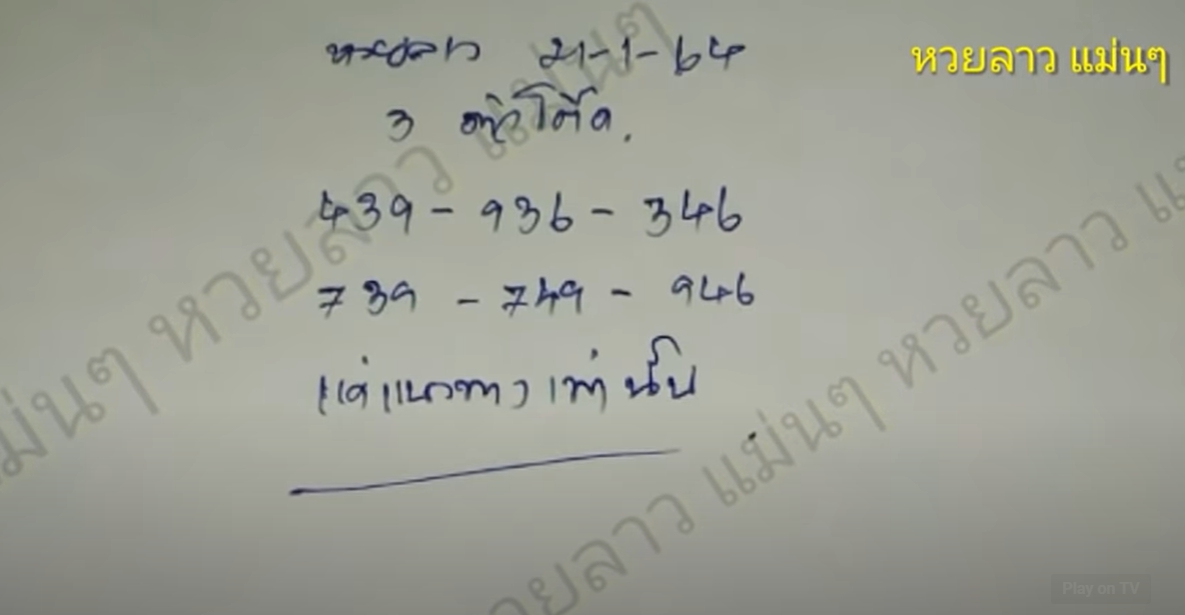 หวยลาว 21-1-64
หวยลาว แม่นๆ
3 ตัวโต๊ด.
439 - 936 - 346
739 - 749 - 946
แค่แนวทางเท่านั้น
แม่นๆ หวยลาว แม่นๆ
หวยลาว แม่นๆ หวยลาว แม่
Play on TV